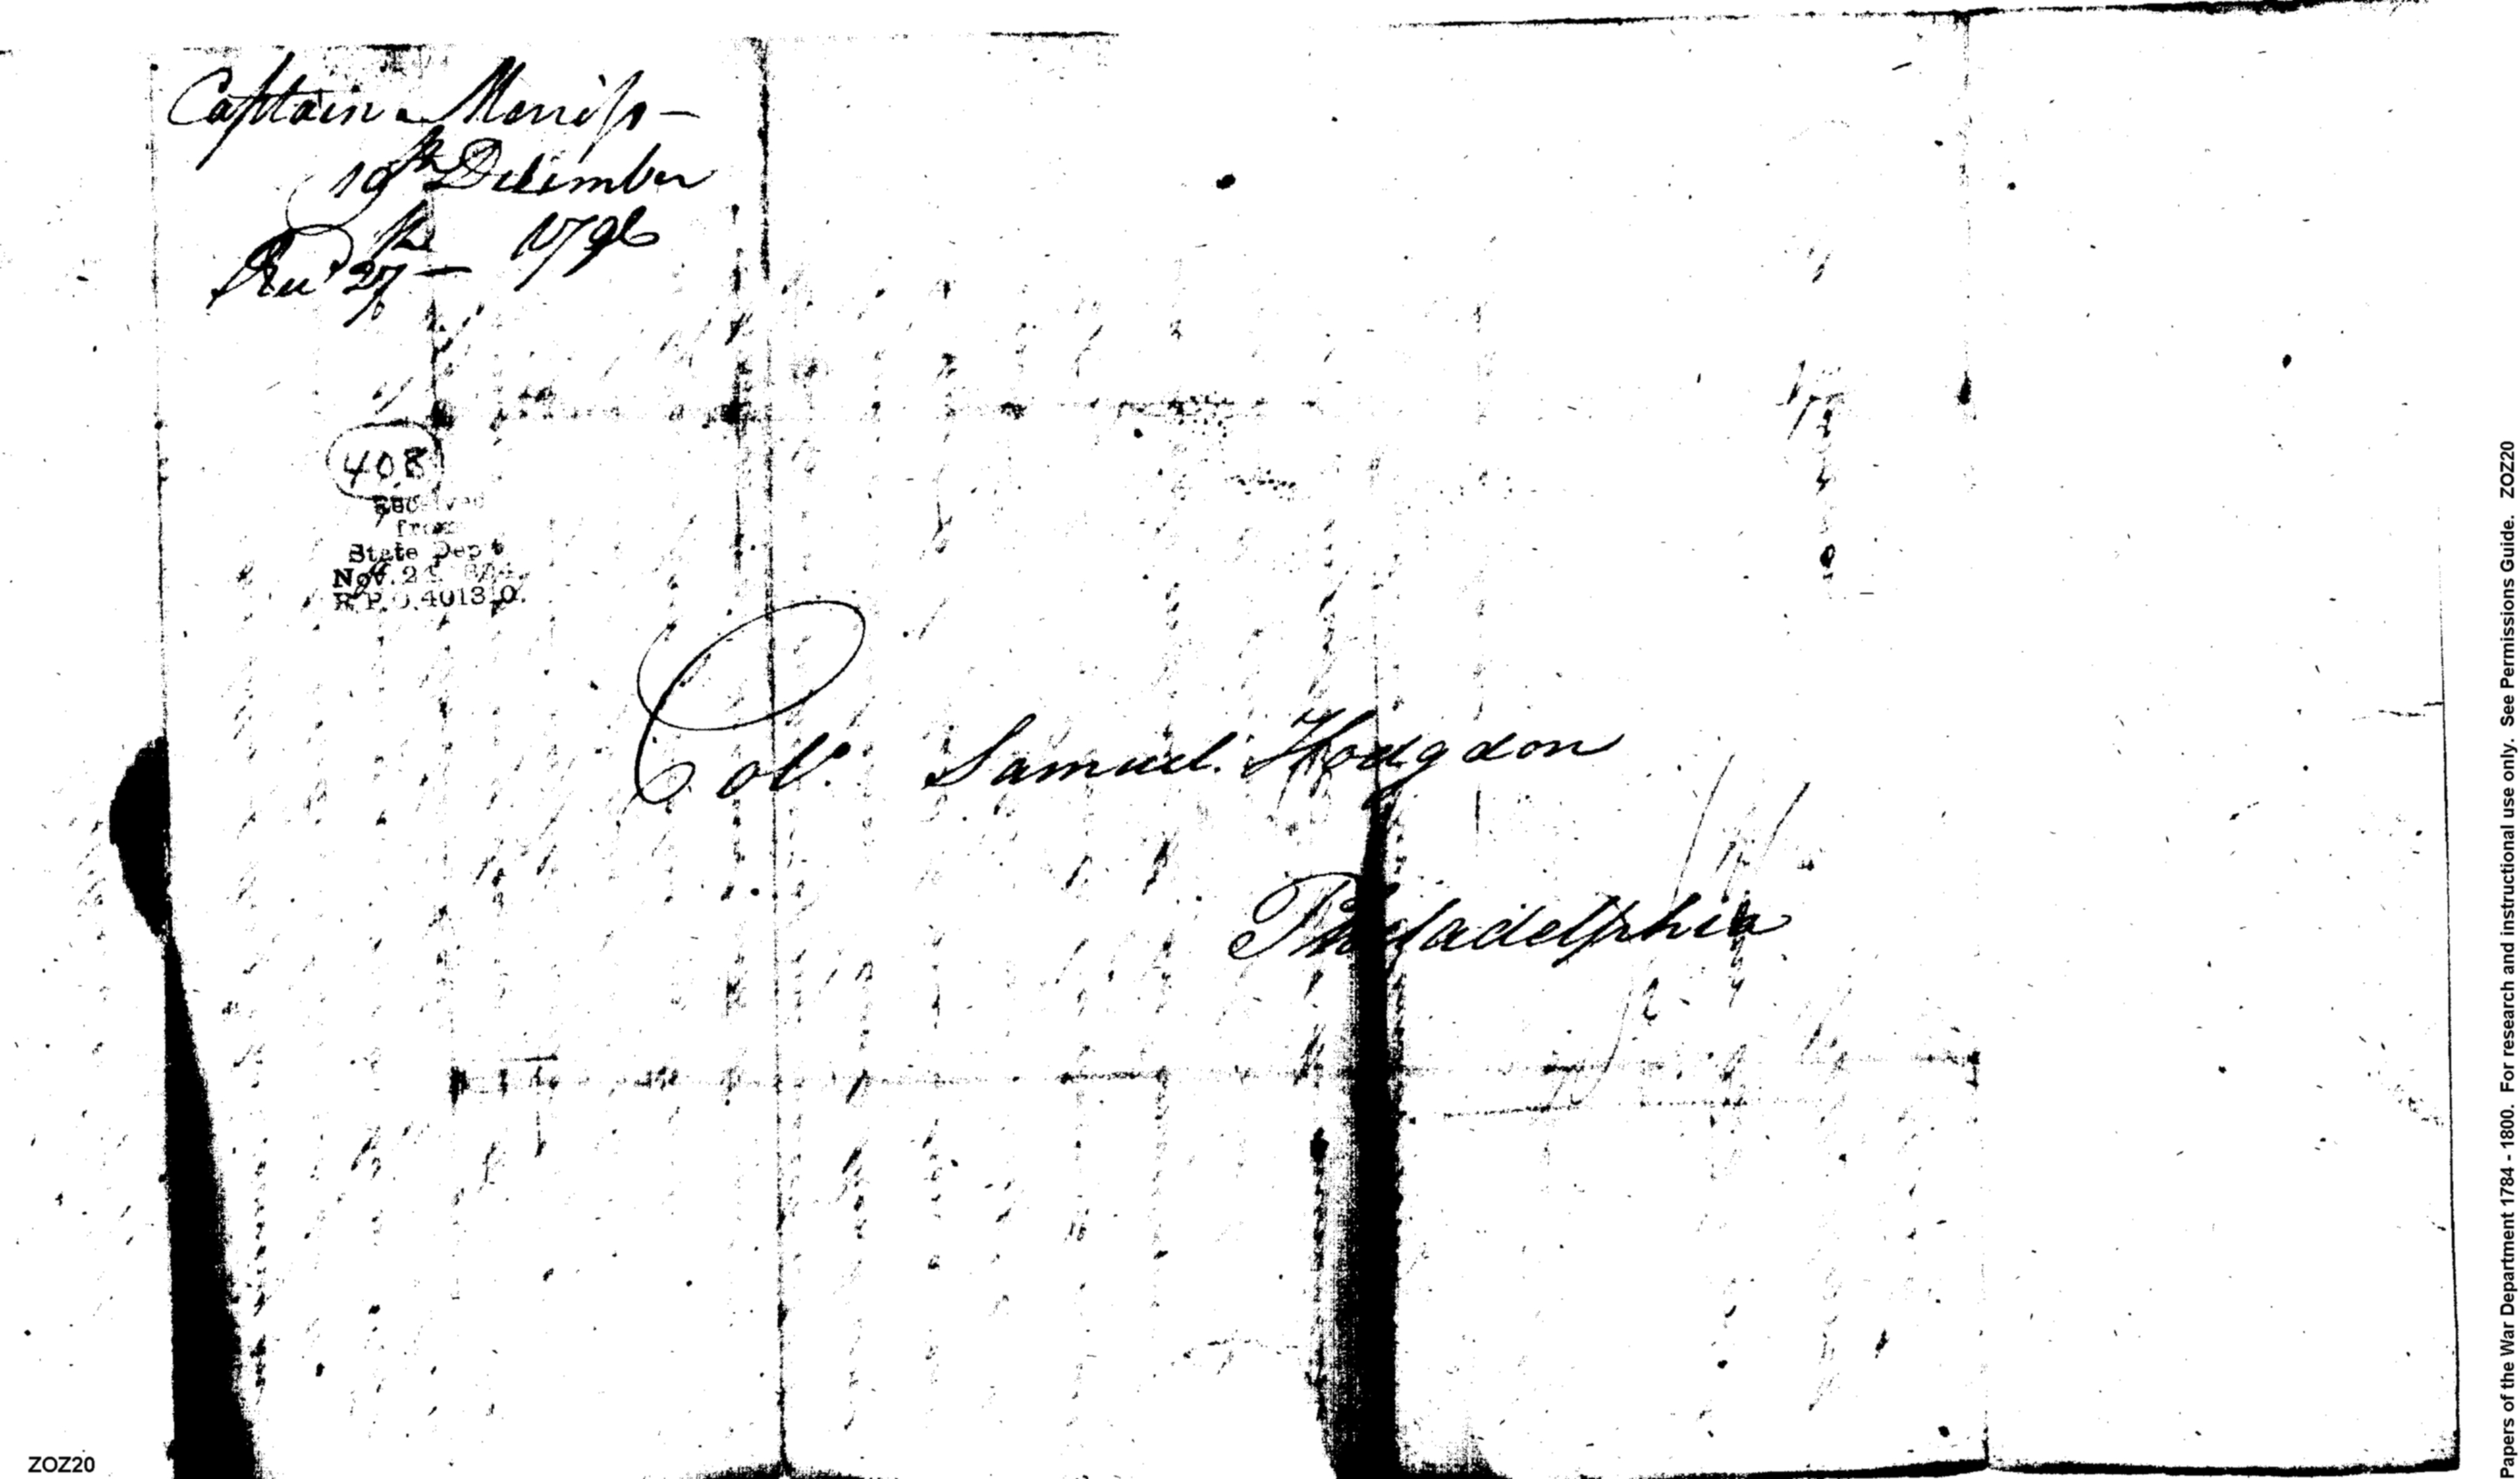 Captain Merriss —
19th December
1796
Recd 27th —
408
Received
from
State Dep't
Nov. 2
R.P.O. 4013 O.
Coll. Samuel Hodgdon
Philadelphia
ZOZ20
Papers of the War Department 1784 - 1800. For research and instructional use only. See Permissions Guide. ZOZ20